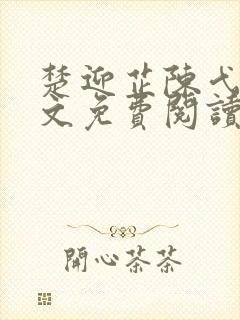 楚迎芷陳弋
文免費閱讀
開心茶茶